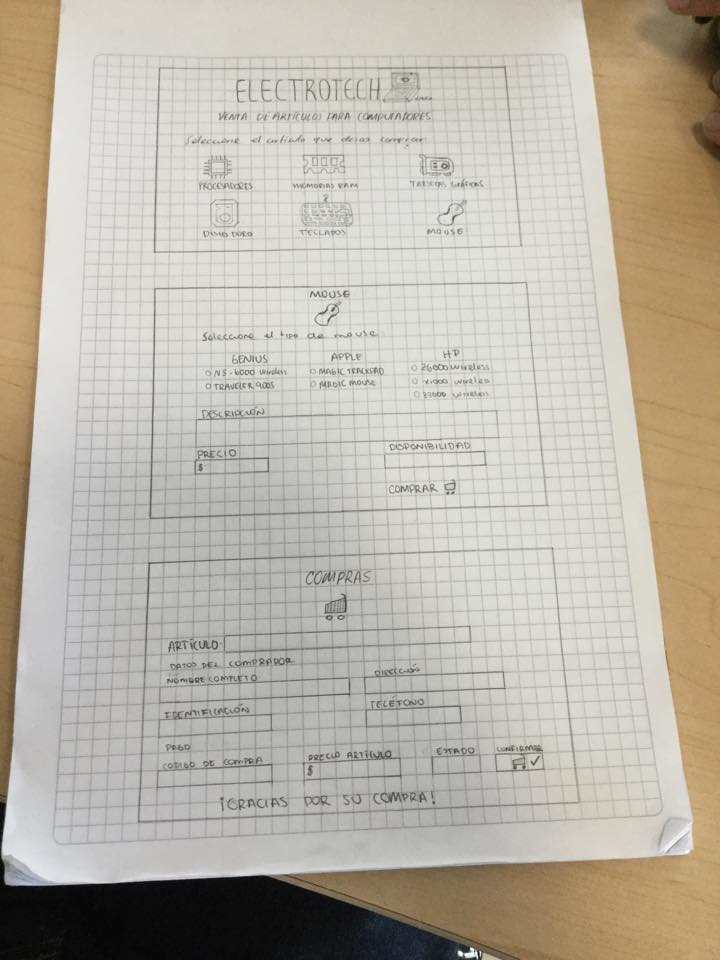 ELECTROTECH
VENTA DE ARTÍCULOS PARA COMPUTADORES
Seleccione el artículo que desea comprar:
PROCESADORES MEMORIAS RAM TARJETAS GRÁFICAS
DISCO DURO TECLADOS MOUSE
MOUSE
Seleccione el tipo de mouse:
GENIUS APPLE HP
NS-6000 wireless MAGIC TRACKPAD Z6000 wireless
TRAVELER 900S MAGIC MOUSE X1000 wireless
Z3600 wireless
DESCRIPCIÓN
PRECIO DISPONIBILIDAD
$
COMPRAR
COMPRAS
ARTÍCULO:
DATOS DEL COMPRADOR
NOMBRE COMPLETO DIRECCIÓN
IDENTIFICACIÓN TELÉFONO
PAGO
CODIGO DE COMPRA PRECIO ARTÍCULO ESTADO CONFIRMAR
$
¡GRACIAS POR SU COMPRA!